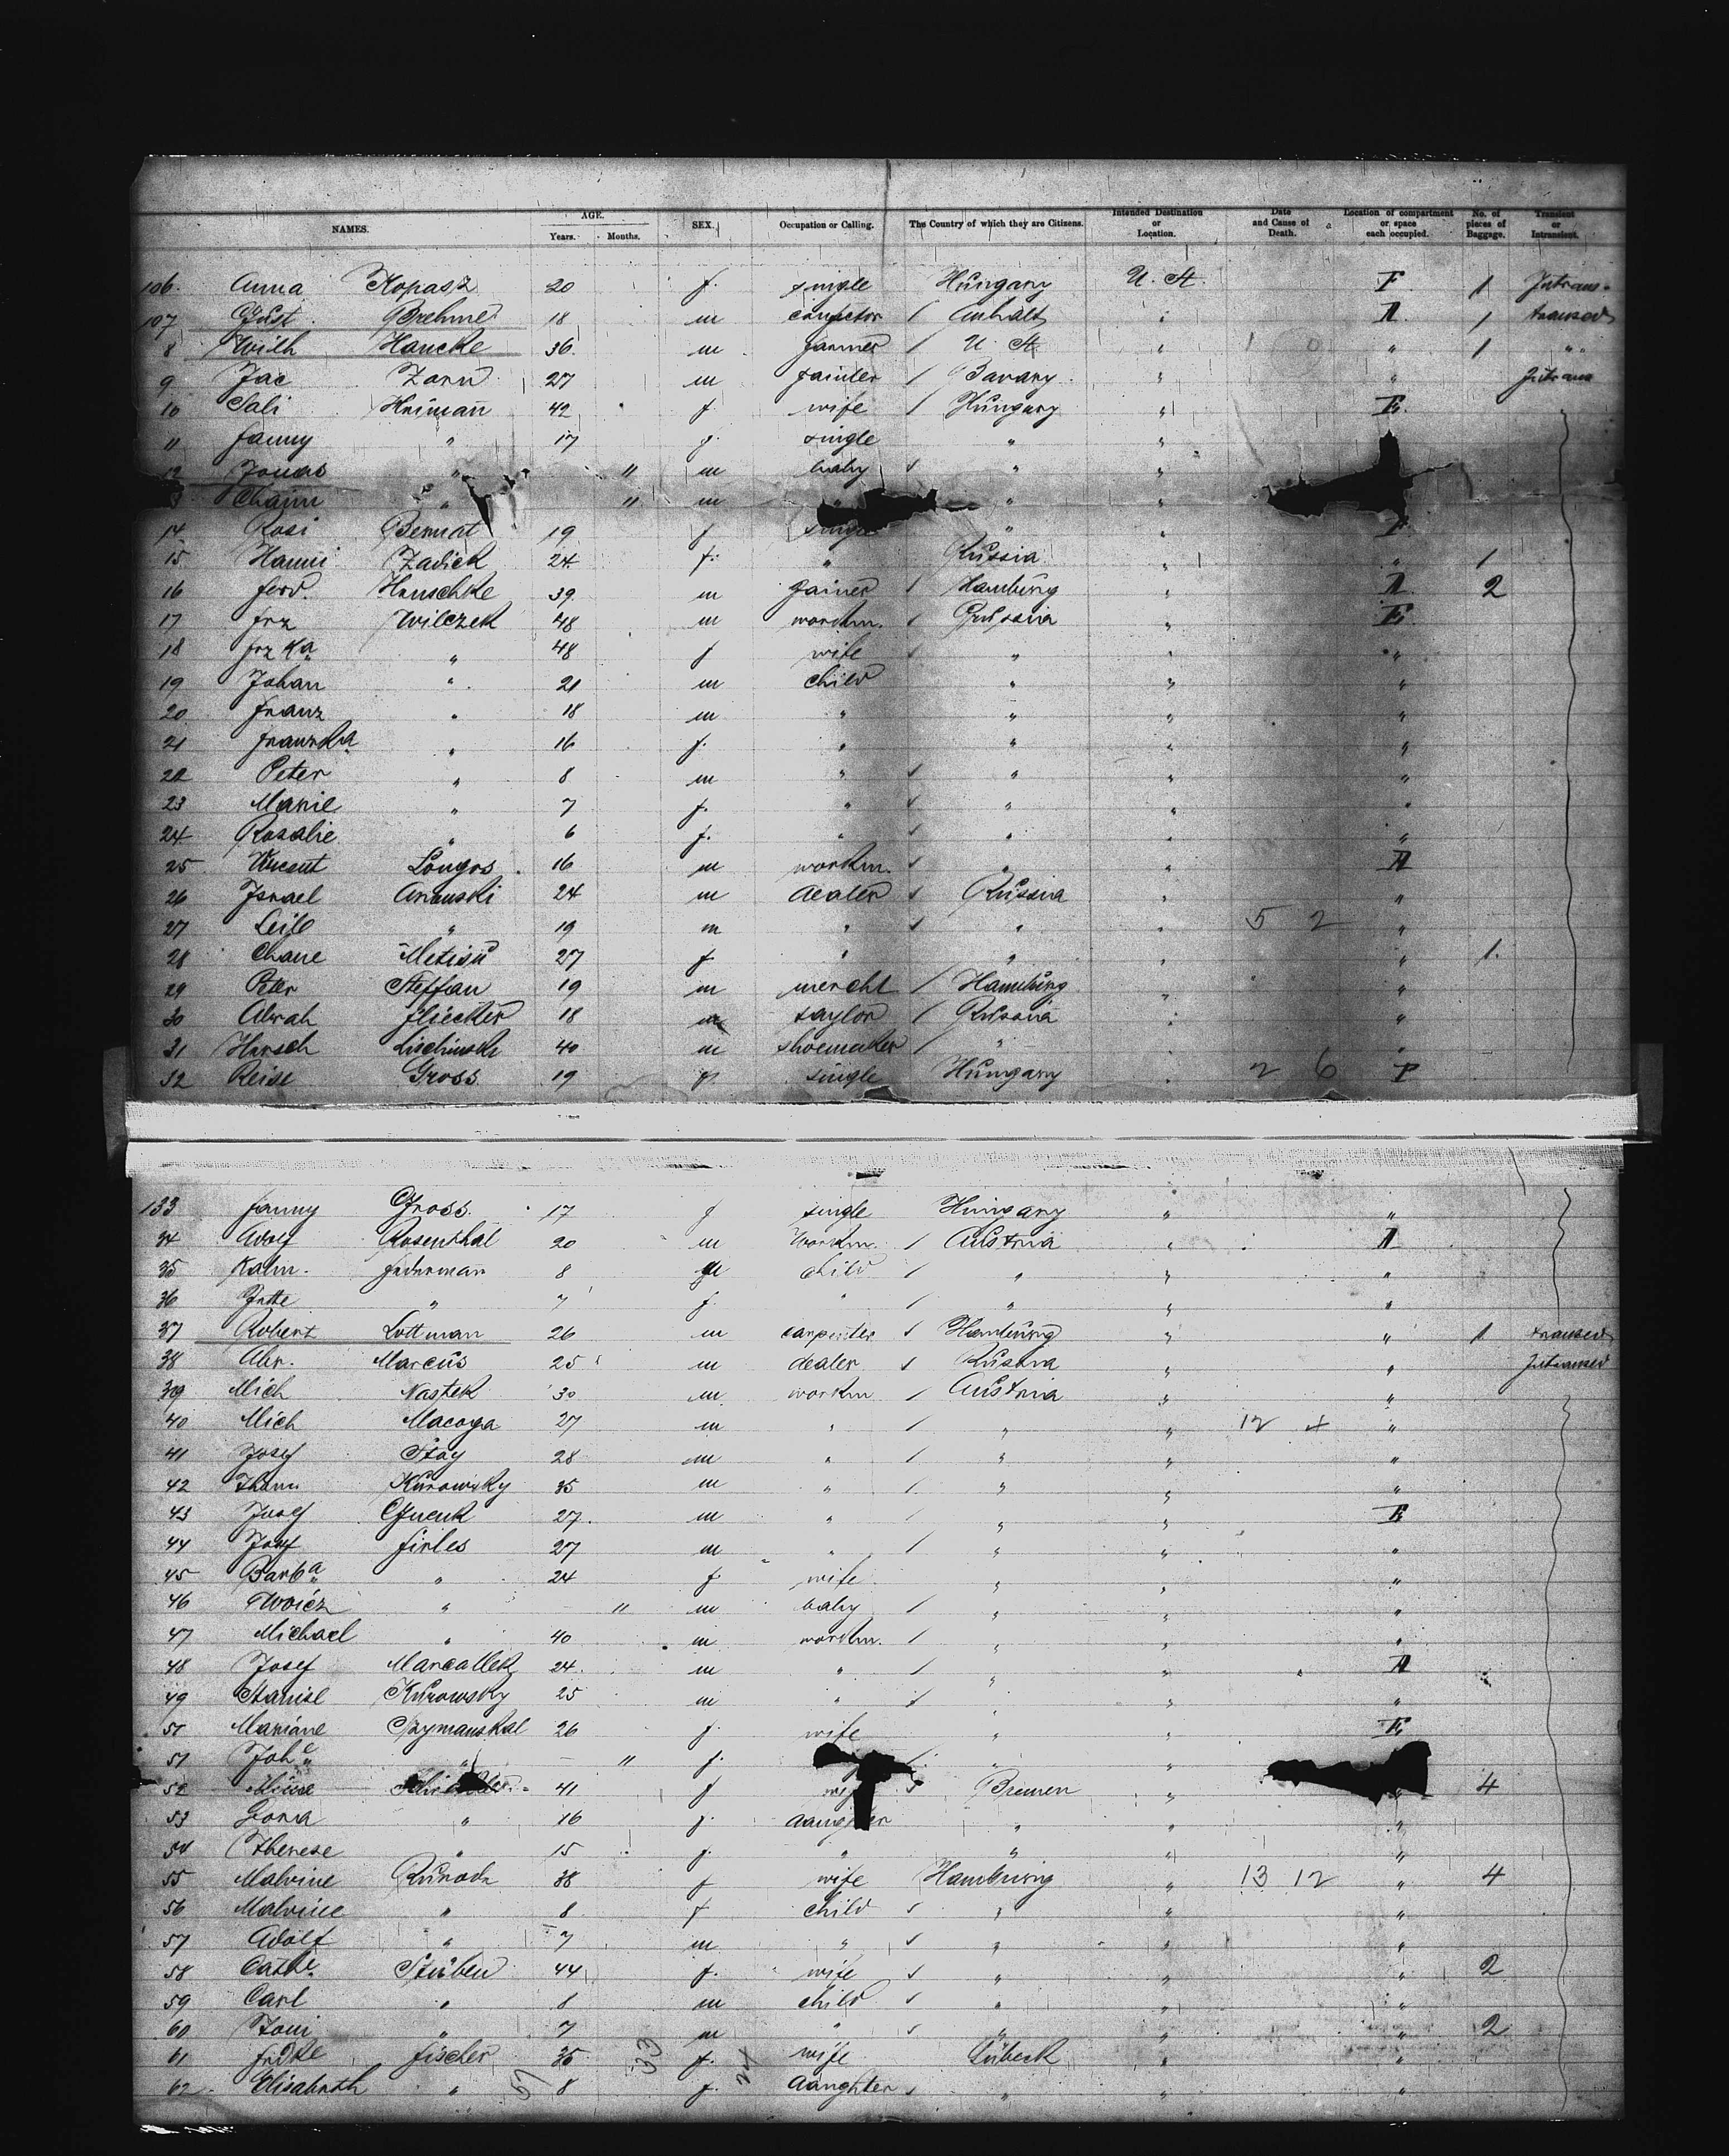 NAMES. AGE. Years. Months. SEX. Occupation or Calling. The Country of which they are Citizens. Intended Destination or Location. Date and Cause of Death. Location of compartment or space each occupied. No. of pieces of Baggage. Transient or Intransient.
106. Anna Kopasz 20 f. single Hungary U. St. F 1 Intrans.
107 Gust. Brehme 18 m / Anhalt " 1 transed
8 Wilh Hancke 36. m farmer / U. St. " " 1 "
9 Jac Zorn 27 m painter / Bavary " " Intrans
10 Sali Heimann 42 f. wife / Hungary "
11 Fanny " 17 f. single " "
12 Jonas " 11 m baby " "
Chaim " 11 m " "
14 Rosi Bernat 19 f single " " F
15 Hanni Zadick 24 f. " Russia " " 1
16 Ferd. Henschke 39 m / Hamburg " 2
17 Frz Wilczek 48 m workm. "
18 Frzka " 48 f wife " " "
19 Johan " 21 m child " " "
20 Franz " 18 m " " " "
21 Franzska " 16 f. " " " "
22 Peter " 8 m " " " "
23 Marie " 7 f. " " " "
24 Rosalie " 6 f. " " " "
25 Vincent 16 m workm. " "
26 Israel 24 m dealer Russia " "
27 " 19 m " " " 5 2 "
28 Chane 27 f. " " " " 1.
29 Peter Steffan 19 m mercht / Hamburg " "
30 Abrah Fliecker 18 m taylor / Russia " "
31 Hersch Lischinski 40 m shoemaker / " " "
32 Reise Gross 19 f. single Hungary " 2 6 F
133 Fanny Gross. 17 f single Hungary " "
34 Adolf Rosenthal 20 m workm. / Austria "
35 Kalm. Federman 8 child / " " "
36 Jette " 7 f. " / " " "
37 Robert Lottman 26 m carpenter Hamburg " " 1 transed
38 Abr. Marcus 25 m dealer Russia " " Intransed
39 Mich Nastek 30 m workm / Austria " "
40 Mich Macoga 27 m " / " " 12 4 "
41 Josef Stay 28 m " / " " "
42 Kurowsky 35 m " / " " "
43 Josef 27. m " / " " E
44 Josef Firles 27 m " / " " "
45 Barba " 24 f wife " " "
46 " 11 m baby / " " "
47 Michael " 40 m workm. / " " "
48 Josef Marcallek 24. m " / " "
49 Stanisl Kurowsky 25 m " / " " "
Mariane 26 f. wife " " E
51 Johe " 11 f. " "
52 Mine 41 f wife Bremen " " 4
53 " 16 f. daughter " " "
54 Therese " 15 f. " " " "
55 Malvine 38 f wife Hamburg " 13 12 " 4
56 Malvine " 8 f child " " "
57 Adolf " 7 m " " " "
58 Cathe. Stüben 44 f. wife " " " 2
59 Carl " 8 m child " " "
60 Toni " 7 m " " " " 2
61 Fischer 35 f. wife Lübeck " "
62 Elisabeth " 8 f. daughter " " "